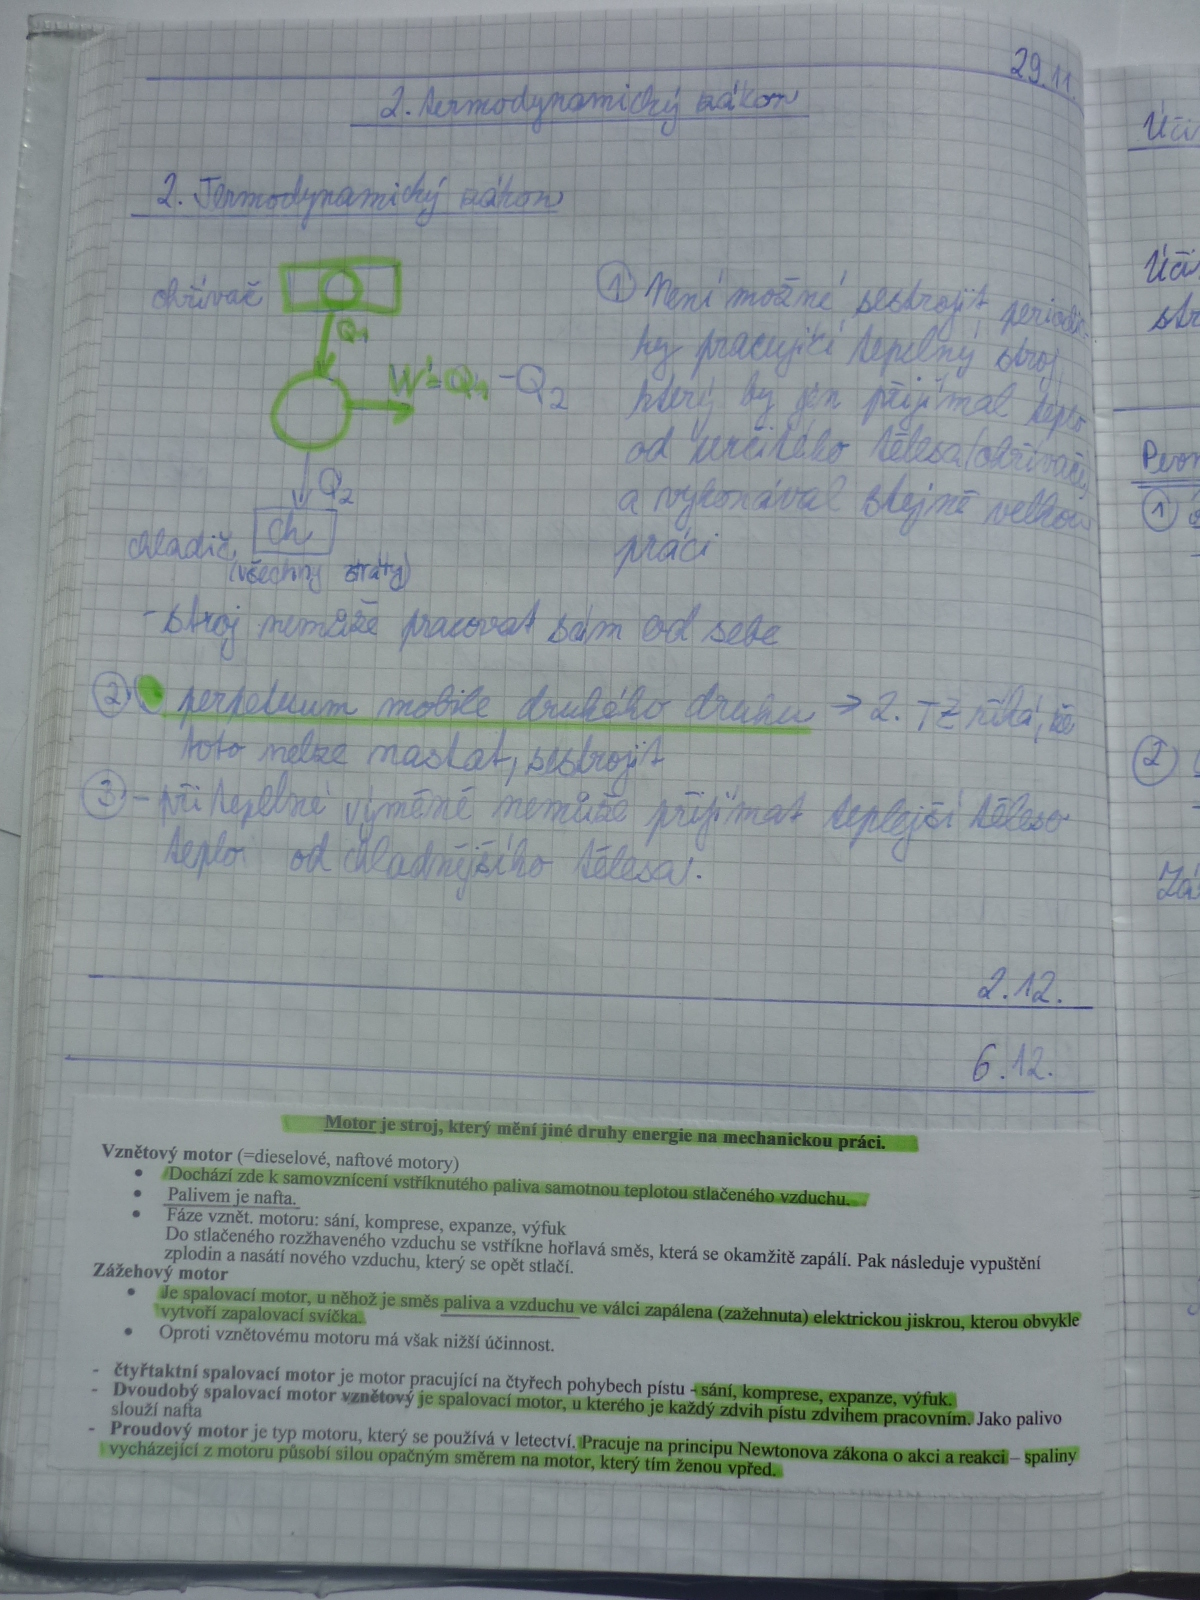 29.11.
2. termodynamický zákon
2. Termodynamický zákon
ohřívač
Q1
W'=Q1 -Q2
Q2
Ch
chladič
(všechny ztráty)
① Není možné sestrojit periodic-
ky pracující tepelný stroj,
který by jen přijímal teplo
od určitého tělesa (ohřívače)
a vykonával stejně velkou
práci
-stroj nemůže pracovat sám od sebe
② perpetuum mobile druhého druhu → 2. TZ říká, že
toto nelze nastat, sestrojit
③ - při tepelné výměně nemůže přijímat teplejší těleso
teplo od chladnějšího tělesa.
2.12.
6.12.
Motor je stroj, který mění jiné druhy energie na mechanickou práci.
Vznětový motor (=dieselové, naftové motory)
• Dochází zde k samovznícení vstříknutého paliva samotnou teplotou stlačeného vzduchu.
• Palivem je nafta.
• Fáze vznět. motoru: sání, komprese, expanze, výfuk
Do stlačeného rozžhaveného vzduchu se vstříkne hořlavá směs, která se okamžitě zapálí. Pak následuje vypuštění
zplodin a nasátí nového vzduchu, který se opět stlačí.
Zážehový motor
• Je spalovací motor, u něhož je směs paliva a vzduchu ve válci zapálena (zažehnuta) elektrickou jiskrou, kterou obvykle
vytvoří zapalovací svíčka.
• Oproti vznětovému motoru má však nižší účinnost.
- čtyřtaktní spalovací motor je motor pracující na čtyřech pohybech pístu - sání, komprese, expanze, výfuk.
- Dvoudobý spalovací motor vznětový je spalovací motor, u kterého je každý zdvih pístu zdvihem pracovním. Jako palivo
slouží nafta
- Proudový motor je typ motoru, který se používá v letectví. Pracuje na principu Newtonova zákona o akci a reakci – spaliny
vycházející z motoru působí silou opačným směrem na motor, který tím ženou vpřed.
①
②